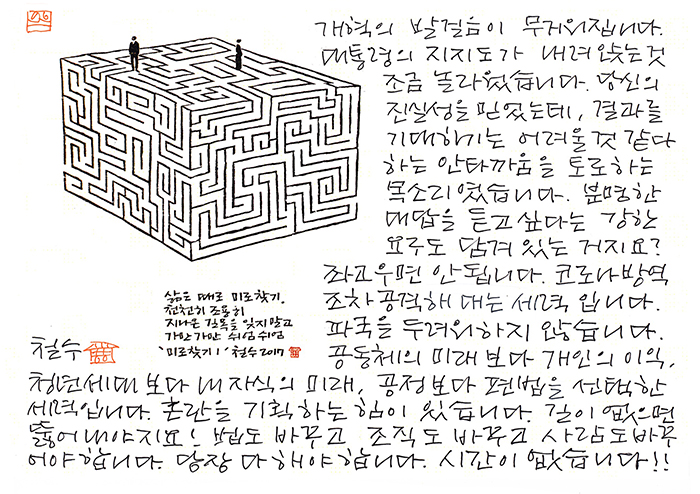 개혁의 발걸음이 무거워집니다.
대통령의 지지도가 내려앉는것
조금 놀라웠습니다. 당신의
진실성을 믿었는데, 결과를
기대하기는 어려울것 같다
하는 안타까움을 토로하는
목소리였습니다. 분명한
대답을 듣고싶다는 강한
요구도 담겨 있는 거지요?
좌고우면 안됩니다. 코로나방역
조차 공격해 대는 세력 입니다.
파국을 두려워하지 않습니다.
공동체의 미래 보다 개인의 이익,
청년세대 보다 내 자식의 미래, 공정보다 편법을 선택한
세력입니다. 혼란을 기획하는 힘이 있습니다. 길이 없으면
뚫어 내야지요! 법도 바꾸고 조직도 바꾸고 사람도 바꾸
어야 합니다. 당장 다 해야합니다. 시간이 없습니다!!
삶은 때로 미로찾기.
천천히 조용히
지나온 길목을 잊지말고
가만 가만 쉬엄 쉬엄
'미로찾기!' 철수 2017
철수